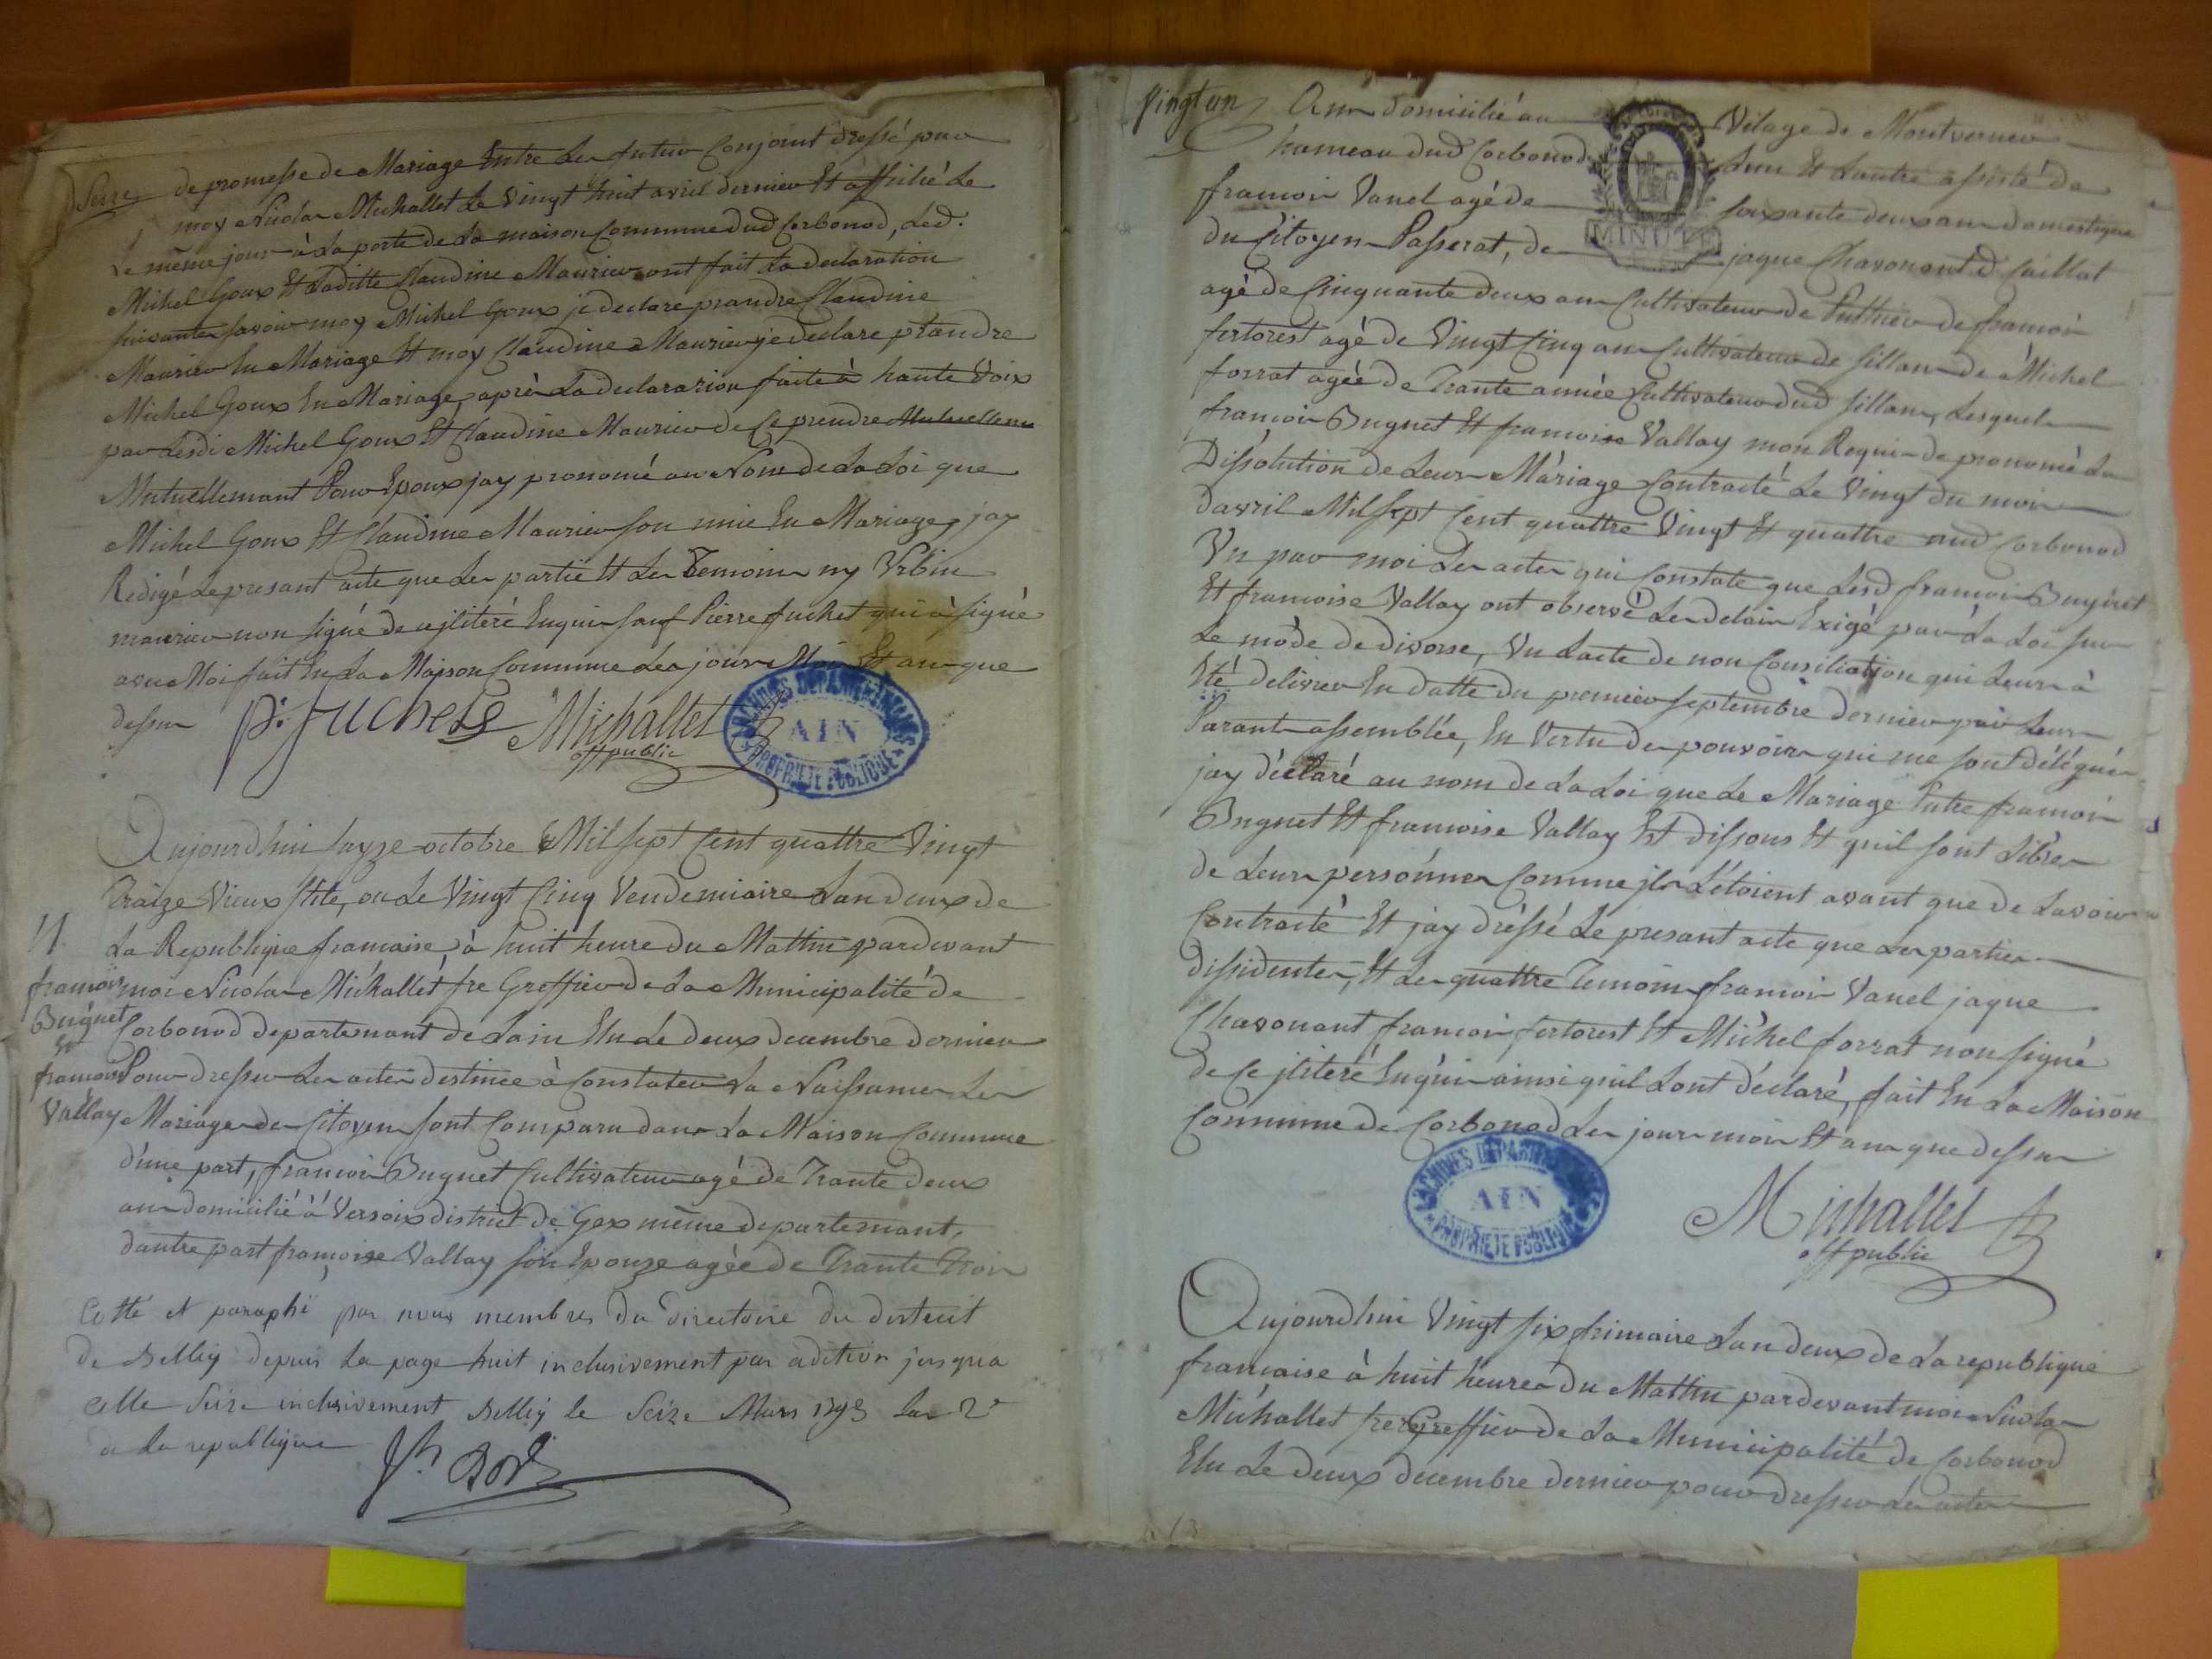 Seize
de promesse de Mariage Entre Les futur Conjoint dressé pour
moy Nicolas Michallet Le Vingt huit avril dernier Et affiché Le
Le même jour à La porte de La maison Commune dud Corbonod, Led.
Michel Goux Et Laditte Claudine Maurier ont fait La declaration
suivante savoir moy Michel Goux je declare prandre Claudine
Maurier En Mariage Et moy Claudine Maurier je declare prandre
Michel Goux En Mariage, après La declararion faite à haute Voix
par Lesdi Michel Goux Et Claudine Maurier de Ce prendre Mutuellemen
Mutuellemant Pour Epoux jay pronomé au Nom de La Loi que
Michel Goux Et Claudine Maurier son unie En Mariage, jay
Redigé Le presant acte que Les partie Et Les Temoins ny Urbin
maurier non signé de ce jliteré Enquis sauf Pierre fuchet qui à signé
avec Moi fait En La Maison Commune Les jour Moi Et an que
dessus
p. fuchet
Michallet
off public
ARCHIVES DEPARTEMENTALES
AIN
PROPRIETE PUBLIQUE
Aujourdhui sayze octobre Mil sept Cent quattre Vingt
Traize Vieux stile, ou Le Vingt Cinq Vendemiaire Lan deux de
La Republique francaise, à huit heure du Mattin pardevant
moi Nicolas Michallet fre Greffier de La Municipalité de
Corbonod departemant de Lain Elu Le deux decembre dernier
Pour dresser Les actes destinée à Constater La Naissance Les
Mariage des Citoyen sont Comparu dans La Maison Commune
d'une part, francois Bugnet Cultivateur agé de Trante deux
ans domicilié à Versoix district de Gex même departemant,
dautre part francoise Vallay son Epouze agée de Trante Trois
11
francois
Bugnet
et
francoise
Vallay
Cotté et paraphé par nous membres du directoire du district
de Belley depuis La page huit inclusivement par adition jusqua
celle Seize inclusivement Belley le Seize Mars 1793 lan 2e
de la republique
Vingt un
Ans domicilié au Vilage de Montverner
hameau dud Corbonod Lun Et Lautre assisté de
francois Vanel agé de soixante deux ans domestique
MINUTE
du Citoyen Passerat, de jaque Chavonant d Caillat
agé de Cinquante deux ans Cultivateur de Puthier de francois
fertorest agé de Vingt Cinq ans Cultivateur de sillans de Michel
forrat agée de Trante année Cultivateur dud sillans, Lesquels
francois Bugnet Et francoise Vallay mon Requis de pronomé La
Dissolution de Leurs Màriage Contracté Le Vingt du mois
davril Mil sept Cent quattre Vingt Et quattre aud Corbonod
Vu par moi Les actes qui Constate que Lesd francois Bugnet
Et francoise Vallay ont observé Les delais Exigé par La Loi sur
Le mode de divorse, Vu Lacte de non Consiliation qui Leurs à
Eté delivrer En datte du premier septembre dernier par Leurs
Parants assemblée, En Vertu des pouvoirs qui me sont délégués
jay déclaré au nom de La Loi que Le Mariage Entre francois
Bugnet Et francoise Vallay Est dissous Et quil sont Libres
de Leurs personnes Comme jls L'étoient avant que de Lavoir
Contracté Et jay dréssé Le presant acte que Les parties
dissidentes, Et Les quattre Temoins francois Vanel jaque
Chavonant francois fertorest Et Michel forrat non signé
de Ce jliteré Enquis ainsi quil Lont déclaré, fait En La Maison
Commune de Corbonod Les jour mois Et ans que dessus
ARCHIVES DEPARTEMENTALES
AIN
PROPRIETE PUBLIQUE
Michallet
off public
Aujourdhui Vingt six frimaire Lan deux de La republique
francaise à huit heures du Mattin pardevant moi Nicolas
Michallet fre Greffier de La Municipalité de Corbonod
Elu Le deux decembre dernier pour dresser Les actes